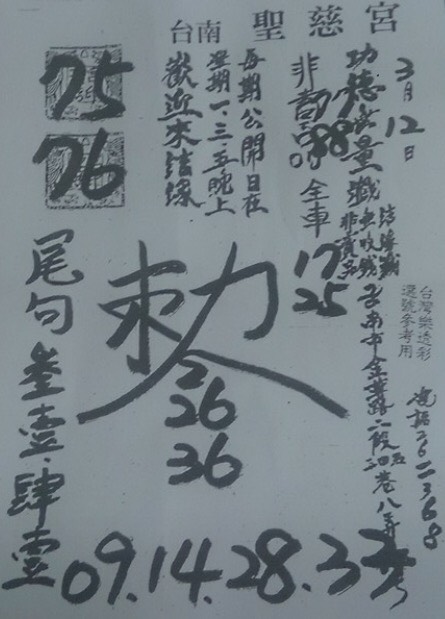 台南 聖慈宮
3月12日
功德無量
結緣
非賣品
全車
77
88
17
25
每期公開日在
星期一.三.五晚上
歡迎來結緣
75
76
台灣樂透彩
選號參考用
電話2612368
台南市金華路二段
巷八弄
號
敕令
2
26
36
尾勾叁壹.肆壹
09.14.28.37